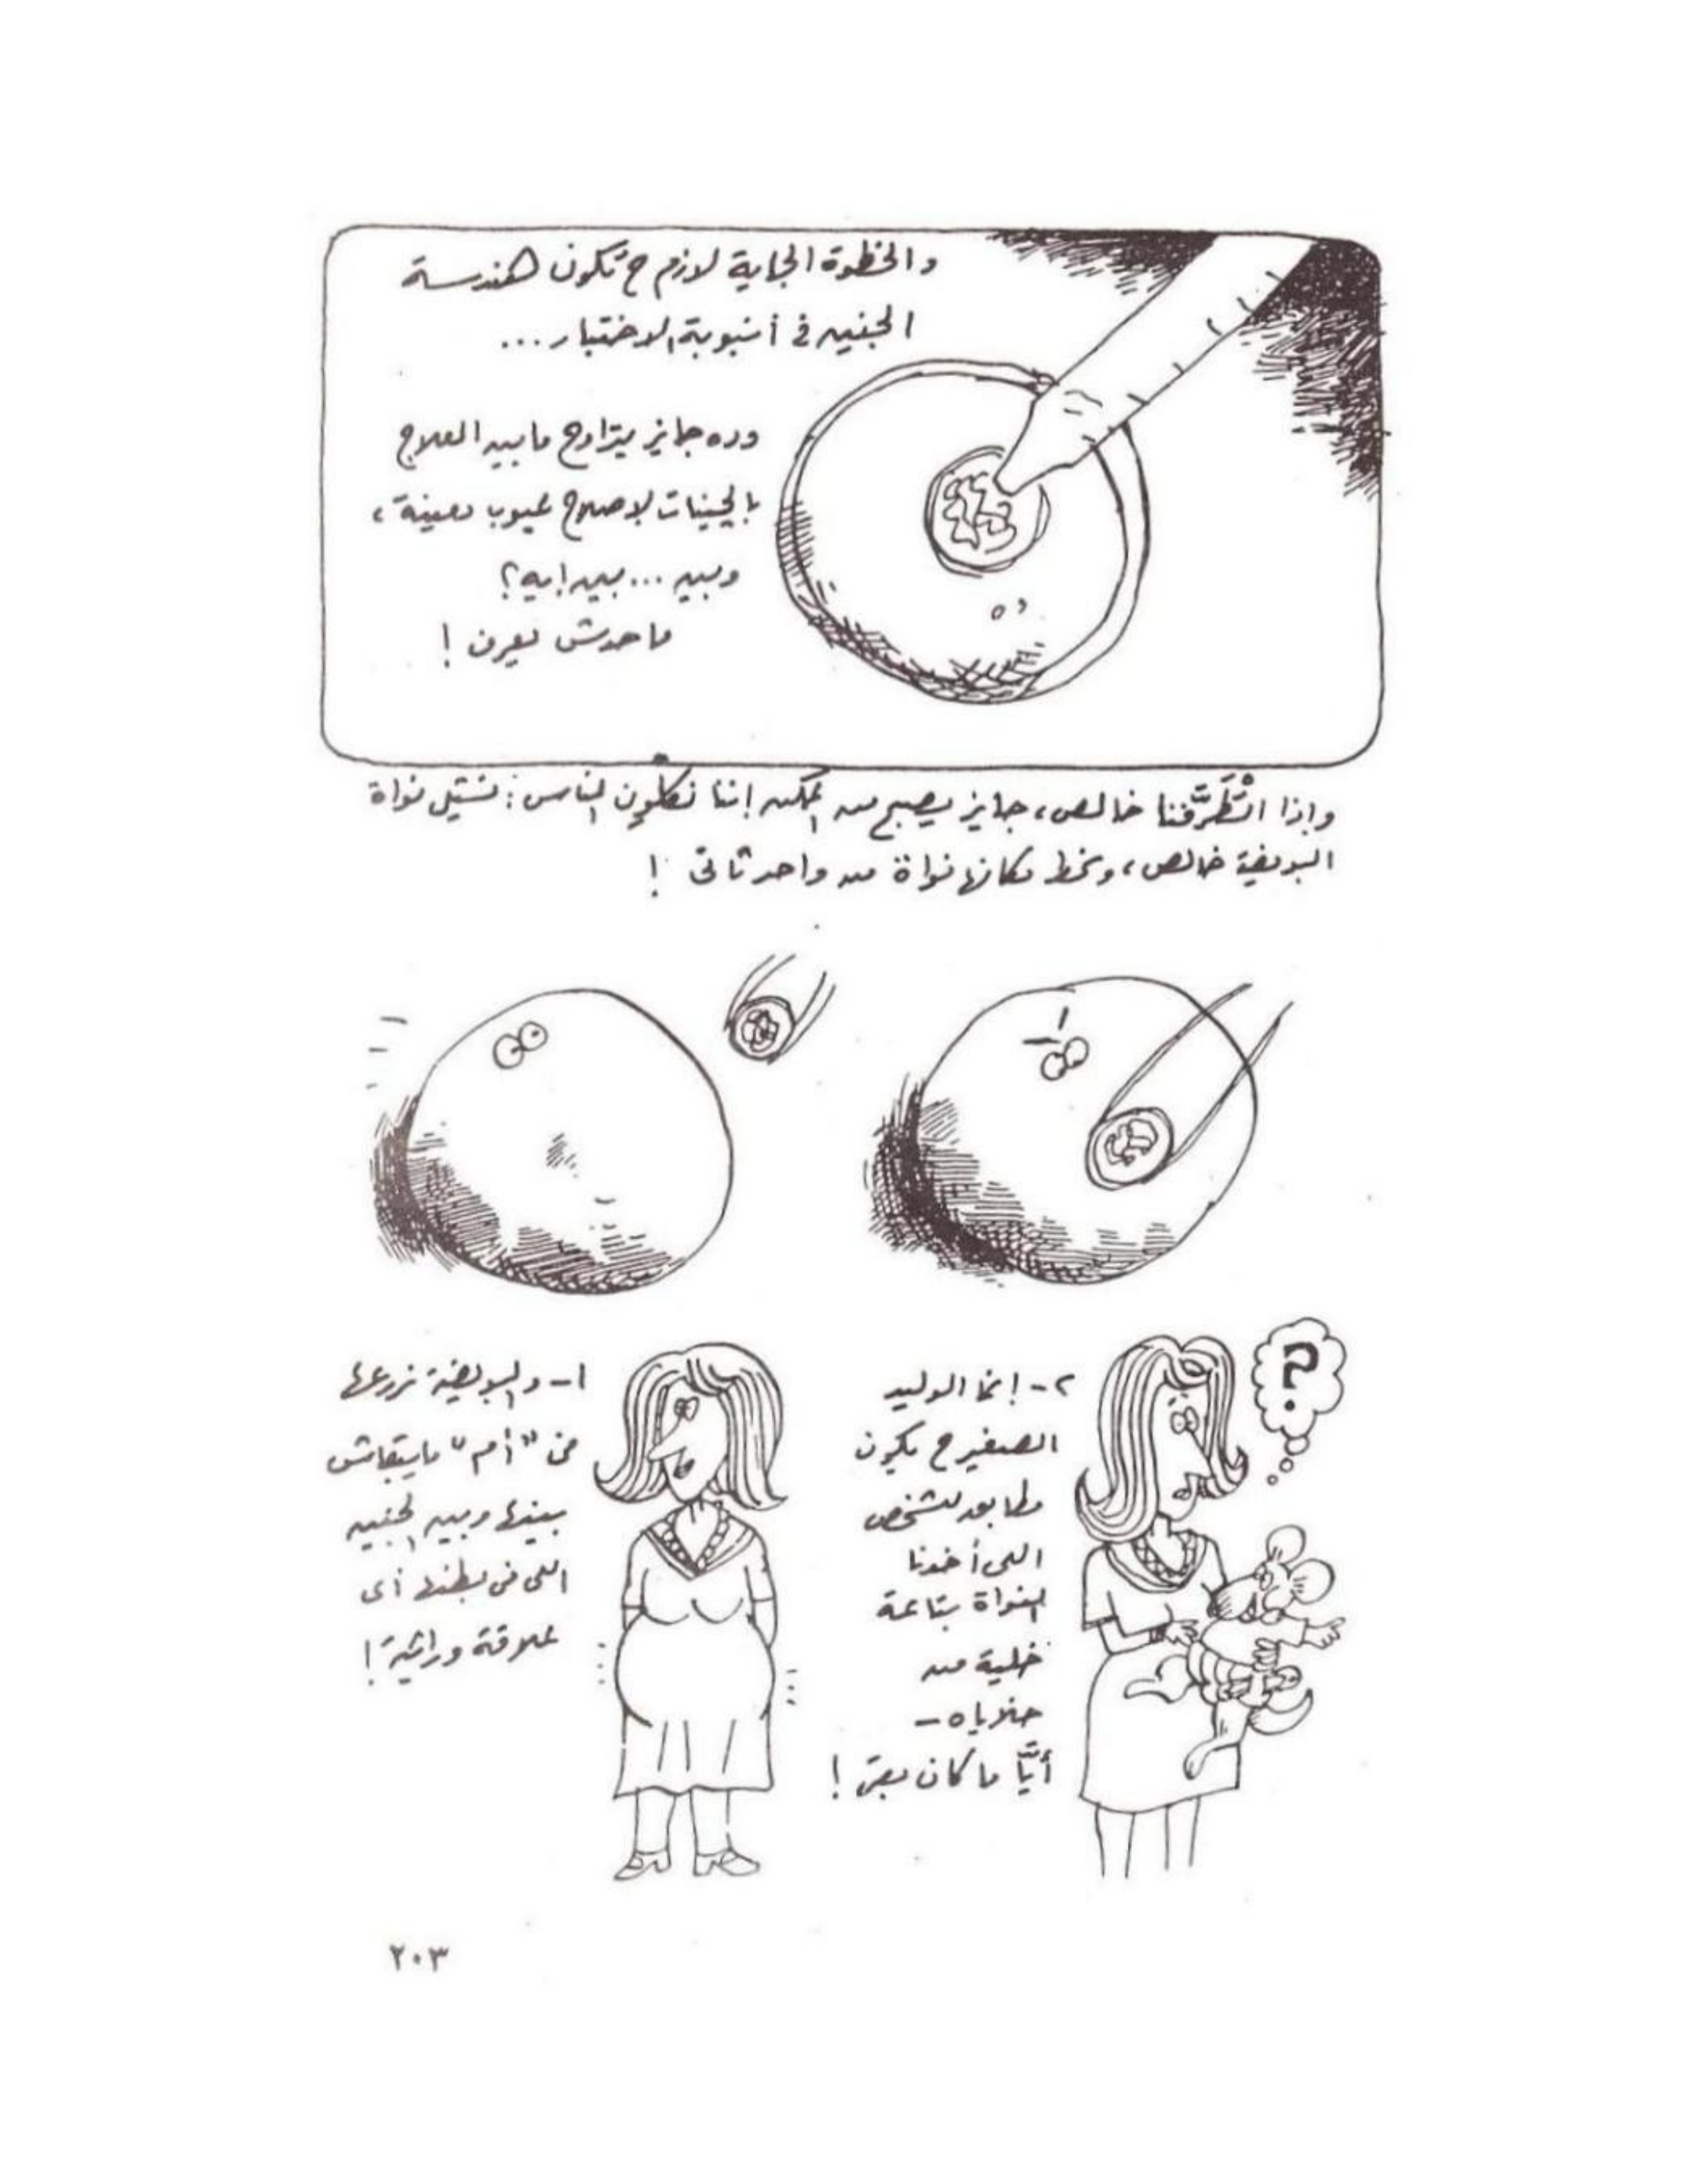 والخطوة الجاية لازم حَ تكون هندسة
الجنين فى أنبوبة الاختبار...
وده جايز يتراوح ما بين العلاج
بالچينات لإصلاح عيوب معينة،
وبين... بين إيه؟
ماحدش يعرف!
وإذا اتْطَرَّفنا خالص، جايز يصبح من الممكن إننا نكلون الناس: نشيل نواة
البويضة خالص، ونحط مكانها نواة من واحد تانى!
١- والبويضة نزرعها
فى "أم" مايبقاش
بينها وبين الجنين
اللى فى بطنها أى
علاقة وراثية!
٢- إنما الوليد
الصغير ح يكون
مطابق للشخص
اللى أخدنا
النواة بتاعة
خلية من
خلاياه -
أيًّا ما كان بقى!
؟
٢٠٣